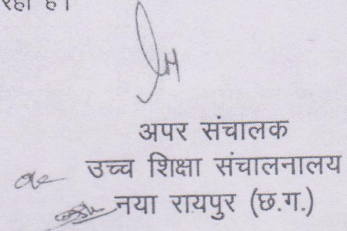 रहा है।
अपर संचालक
उच्च शिक्षा संचालनालय
नया रायपुर (छ.ग.)